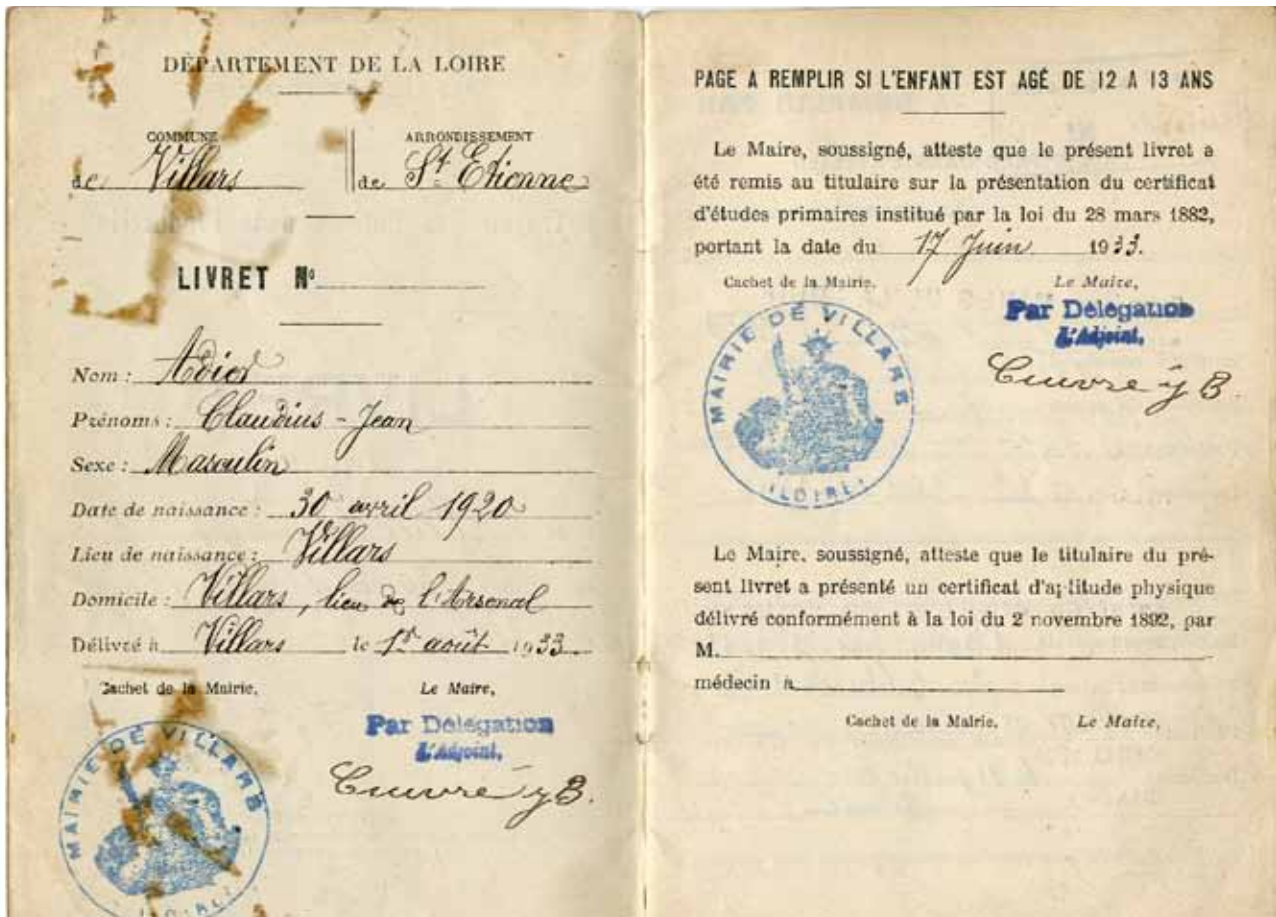 DÉPARTEMENT DE LA LOIRE
COMMUNE
de Villars
ARRONDISSEMENT
de St Etienne
LIVRET No
Nom :
Prénoms : Claudius - Jean
Sexe : Masculin
Date de naissance : 30 avril 1920
Lieu de naissance : Villars
Domicile : Villars, lieu de l'Arsenal
Délivré à Villars le 1er août 1933
Cachet de la Mairie,
Le Maire,
Par Délégation
L'Adjoint,
MAIRIE DE VILLARS
(LOIRE)
PAGE A REMPLIR SI L'ENFANT EST AGÉ DE 12 A 13 ANS
Le Maire, soussigné, atteste que le présent livret a
été remis au titulaire sur la présentation du certificat
d'études primaires institué par la loi du 28 mars 1882,
portant la date du 17 Juin 1933.
Cachet de la Mairie,
Le Maire,
Par Délégation
L'Adjoint,
MAIRIE DE VILLARS
(LOIRE)
Le Maire, soussigné, atteste que le titulaire du pré-
sent livret a présenté un certificat d'aptitude physique
délivré conformément à la loi du 2 novembre 1892, par
M.
médecin à
Cachet de la Mairie,
Le Maire,